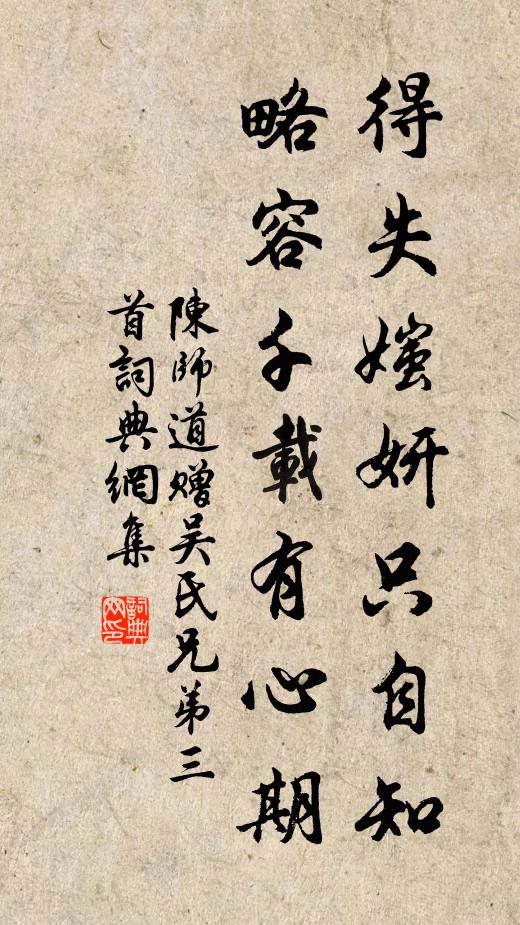 得失媸妍只自知
略容千載有心期
陳師道贈吳氏兄弟三
首詞典網集
詞典
网印